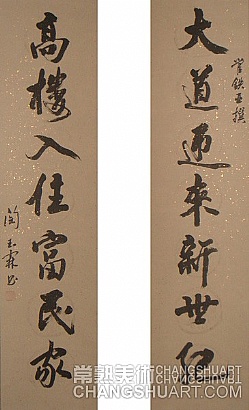 大道迎來新世紀
高樓入住富民家
常熟美術 CHANGSHUART
CHANGSHUART.COM